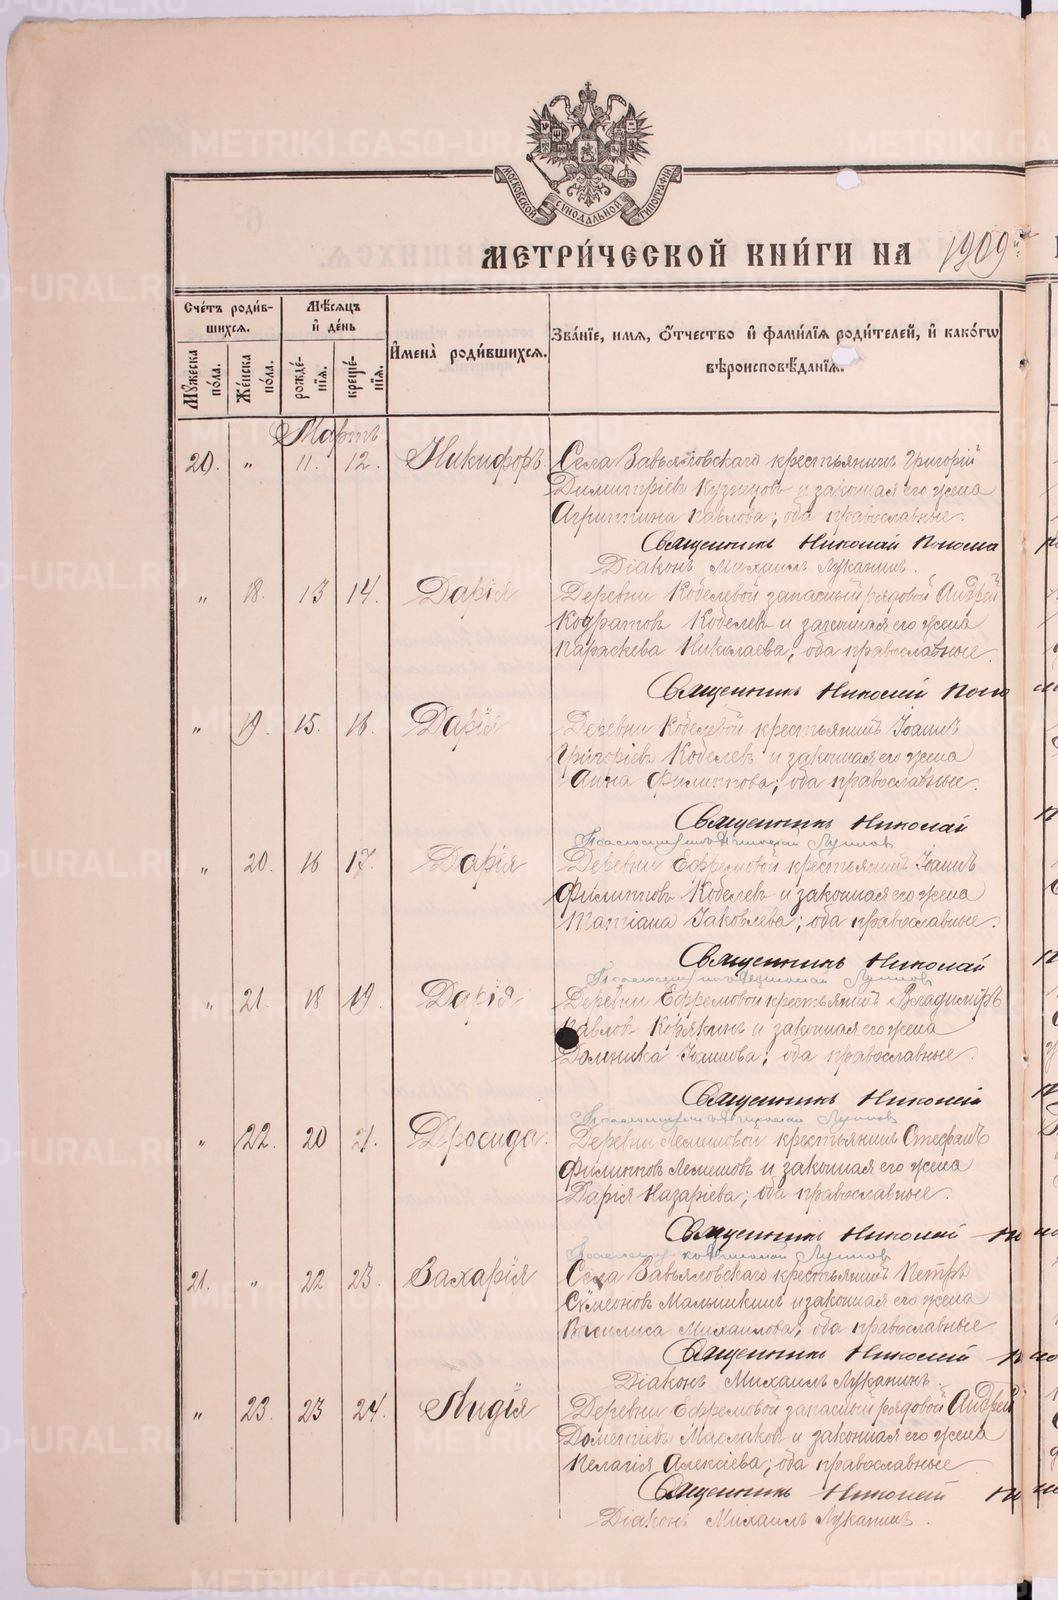 МОСКОВСКОЙ СѴНОДАЛЬНОЙ ТИПОГРАФІИ
МЕТРИ́ЧЕСКОЙ КНИ́ГИ НА 1909й
Сче́тъ роди́вшихся.
Мѣ́сяцъ и҆ де́нь
И҆мена̀ роди́вшихся.
Зва́ніе, имя, ѻ҆́тчество и҆ фами́лїя роди́телей, и҆ како́гѡ вѣроисповѣ́данїя.
Мꙋ́жеска по́ла.
Же́нска по́ла.
рожде́нїя.
креще́нїя.
Мартъ
20. " 11. 12. Никифоръ. Села Завьяловскаго крестьянинъ Григорій
Димитріевъ Кузнецов и законная его жена
Агриппина Павлова; оба православные.
Священникъ Николай Понома
Діаконъ Михаилъ Луканинъ.
" 18. 13 14. Дарія Деревни Кобелевой запасный рядовой Андрей
Кодратовъ Кобелевъ и законная его жена
Параскева Николаева; оба православные.
Священникъ Николай Поно
" 19. 15. 16. Дарія Деревни Кобелевой крестьянинъ Іоаннъ
Григоріевъ Кобелевъ и законная его жена
Анна Филиппова; оба православные.
Священникъ Николай
" 20. 16 17. Дарія Деревни Ефремовой крестьянинъ Іоаннъ
Филипповъ Кобелевъ и законная его жена
Татіана Іаковлева; оба православные.
Священникъ Николай
" 21. 18 19. Дарія Деревни Ефремовой крестьянинъ Владиміръ
Павловъ Корякинъ и законная его жена
Домника Іоаннова; оба православные.
Священникъ Николай
" 22. 20 21. Дросида. Деревни Лемешовой крестьянинъ Стефанъ
Филипповъ Лемешовъ и законная его жена
Дарія Назаріева; оба православные.
Священникъ Николай
21. " 22 23. Захарія Села Завьяловскаго крестьянинъ Петръ
Сѵмеоновъ Малышкинъ и законная его жена
Василиса Михаилова; оба православные
Священникъ Николай
Діаконъ Михаилъ Луканинъ.
" 23. 23 24. Лидія Деревни Ефремовой запасной рядовой Андрей
Дометіевъ Маслаковъ и законная его жена
Пелагія Алексіева; оба православные
Священникъ Николай
Діаконъ Михаилъ Луканинъ.
METRIKI.GASO-URAL.RU